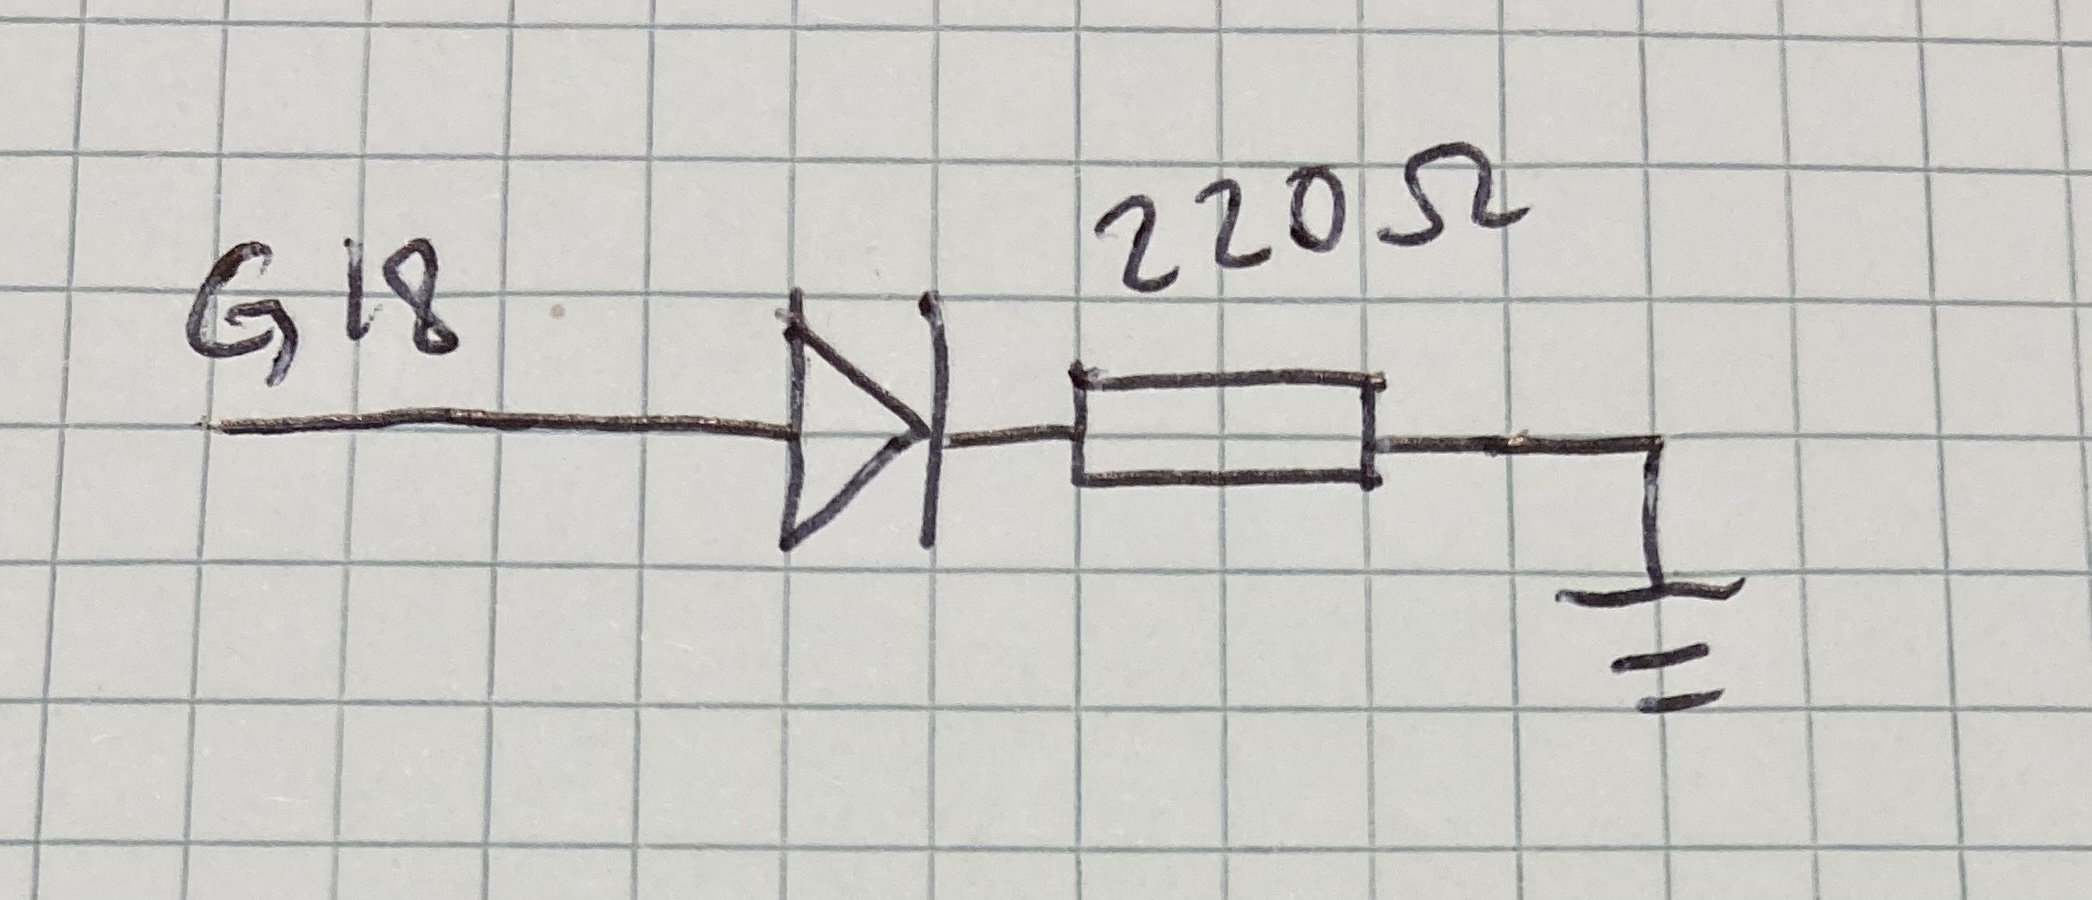 G18
220Ω